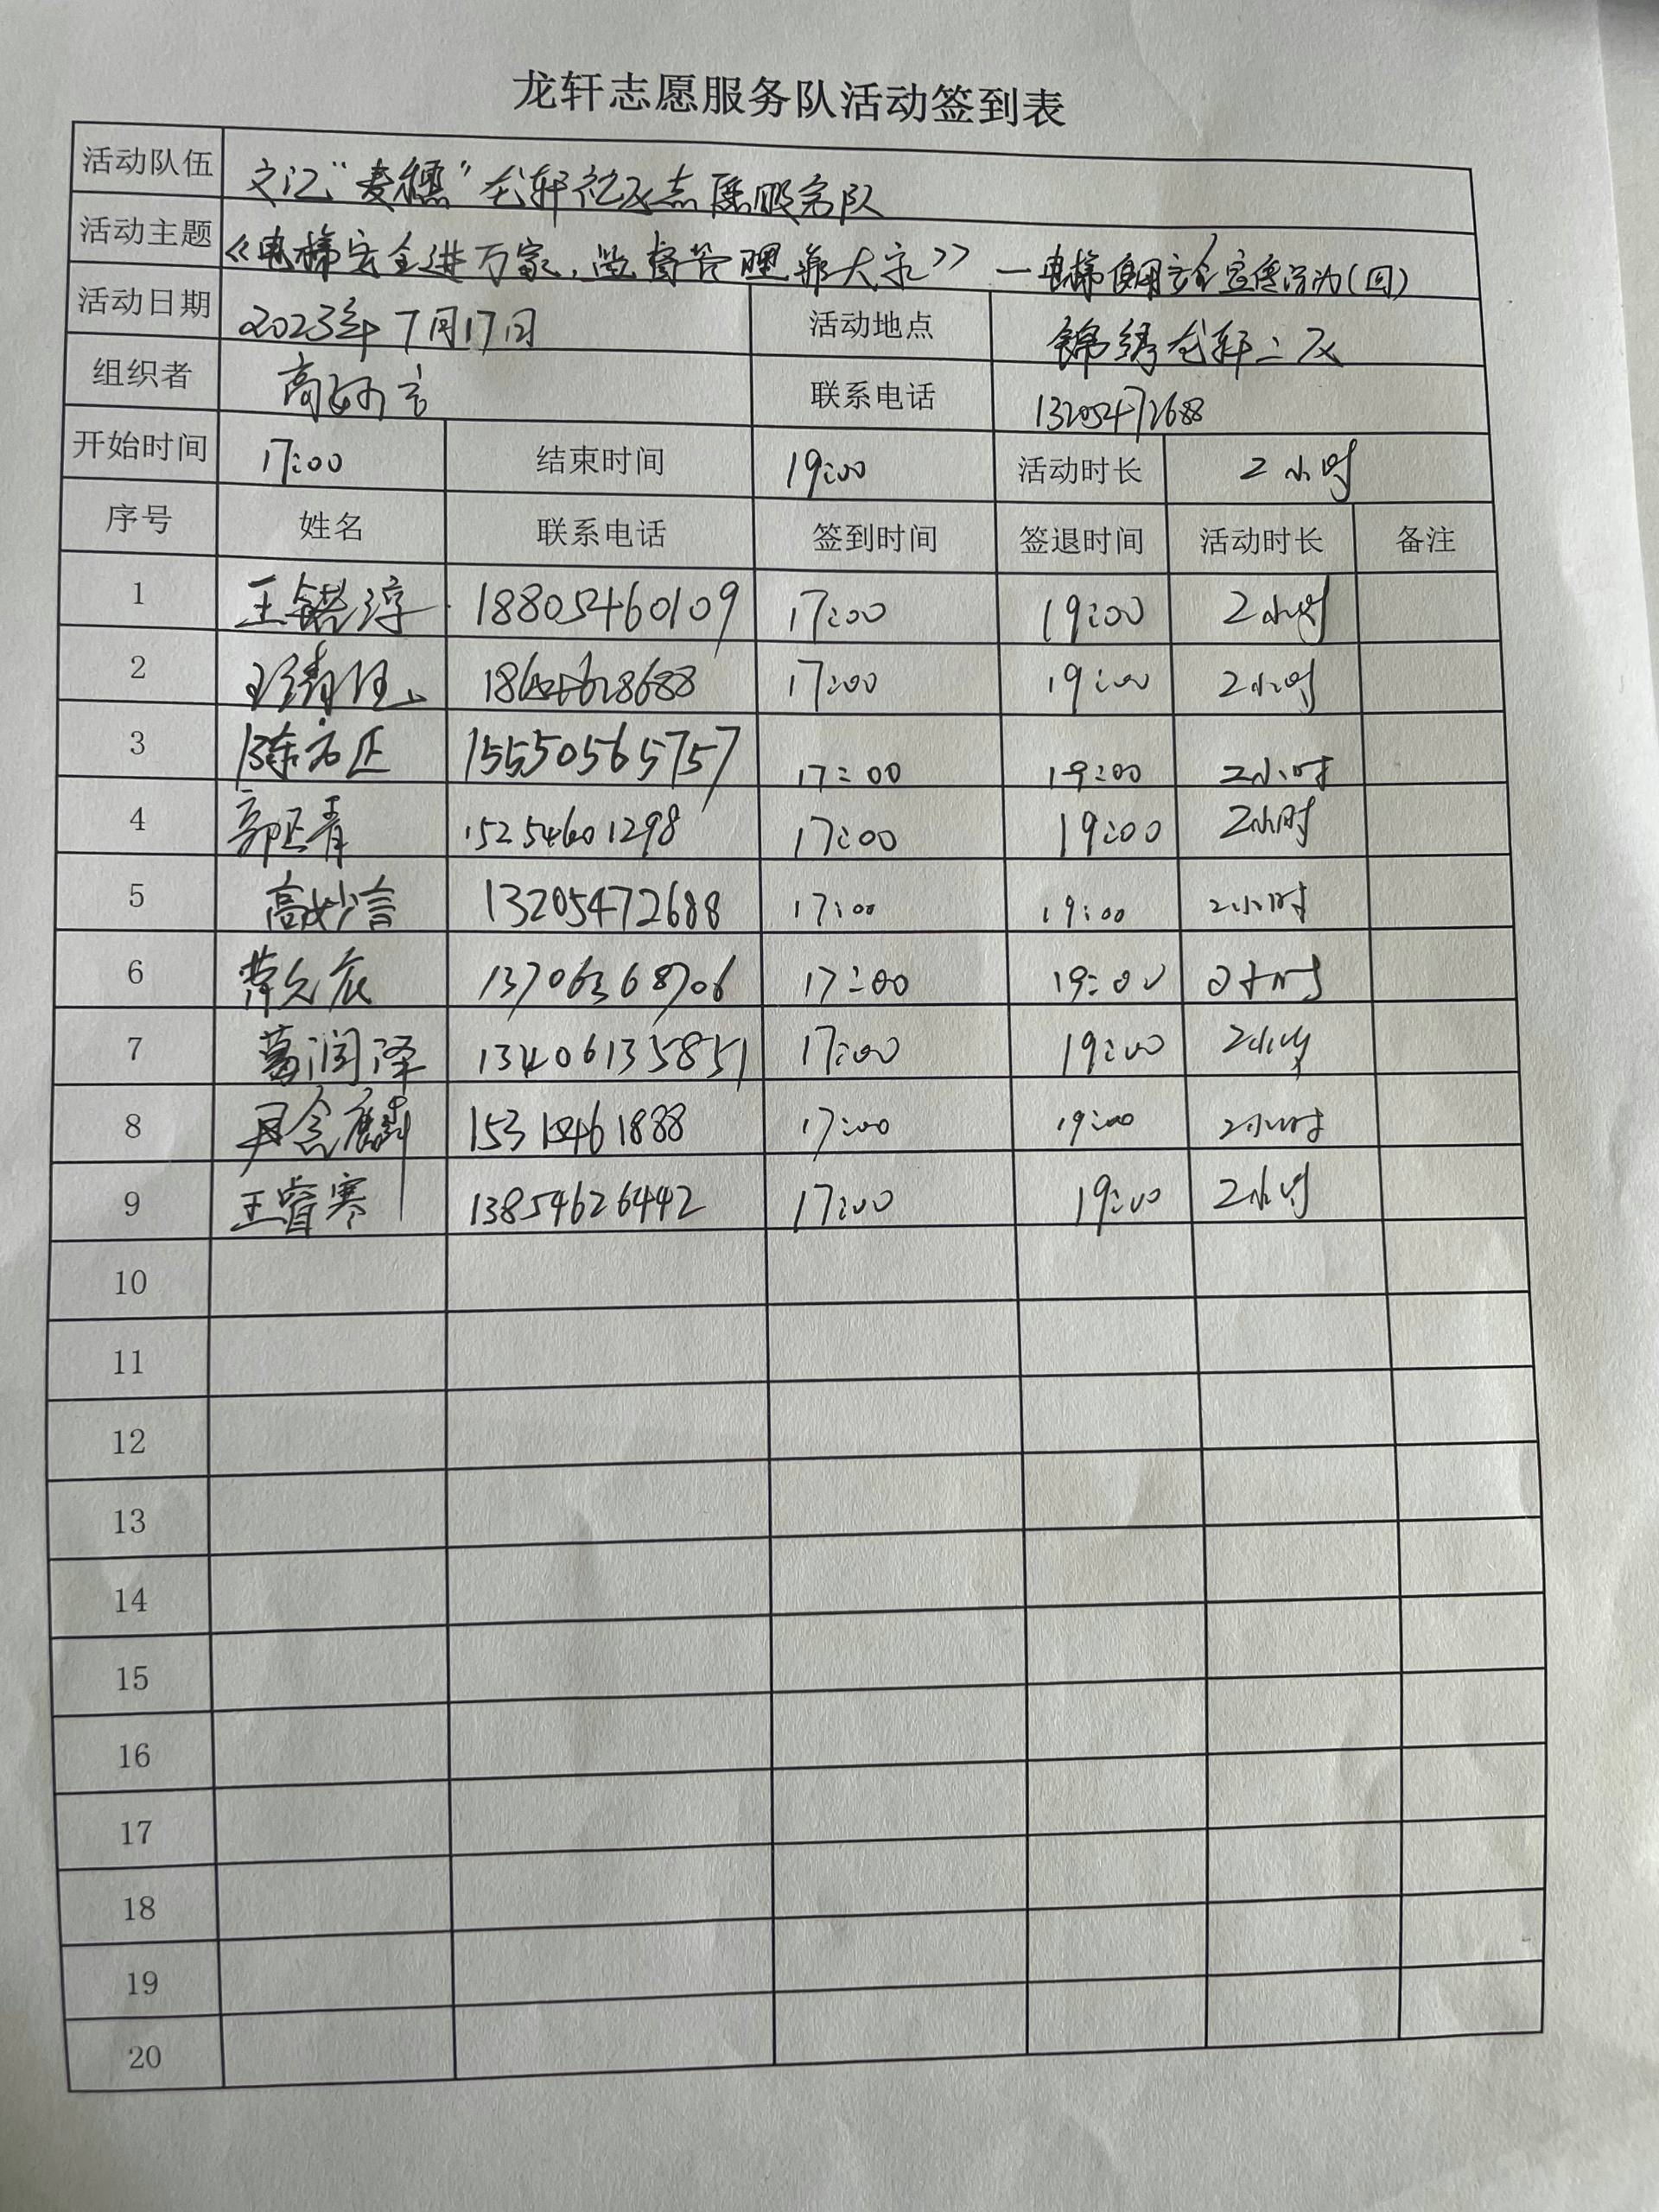 龙轩志愿服务队活动签到表
活动队伍 文汇“麦穗”龙轩社区志愿服务队
活动主题 《电梯安全进万家，监督管理靠大家》—电梯使用安全宣传活动（四）
活动日期 2023年7月17日 活动地点 锦绣龙轩二区
组织者 高妙言 联系电话 13205472688
开始时间 17:00 结束时间 19:00 活动时长 2小时
序号 姓名 联系电话 签到时间 签退时间 活动时长 备注
1 王锘淳 18805460109 17:00 19:00 2小时
2 17:00 19:00 2小时
3 陈右正 15550565757 17:00 19:00 2小时
4 郭丕青 15254601298 17:00 19:00 2小时
5 高妙言 13205472688 17:00 19:00 2小时
6 13706368706 17:00 19:00 2小时
7 葛润泽 13406135851 17:00 19:00 2小时
8 麟 17:00 19:00 2小时
9 王睿寒 13854626442 17:00 19:00 2小时
10
11
12
13
14
15
16
17
18
19
20